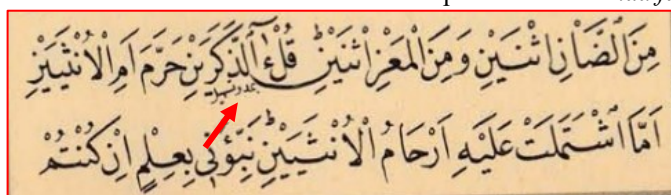 مِنَ الضَّاْنِ اثْنَيْنِ وَمِنَ الْمَعْزِ اثْنَيْنِ قُلْ ءٰۤالذَّكَرَيْنِ حَرَّمَ اَمِ الْاُنْثَيَيْنِ
اَمَّا اشْتَمَلَتْ عَلَيْهِ اَرْحَامُ الْاُنْثَيَيْنِ نَبِّؤُ۫نٖى بِعِلْمٍ اِنْ كُنْتُمْ